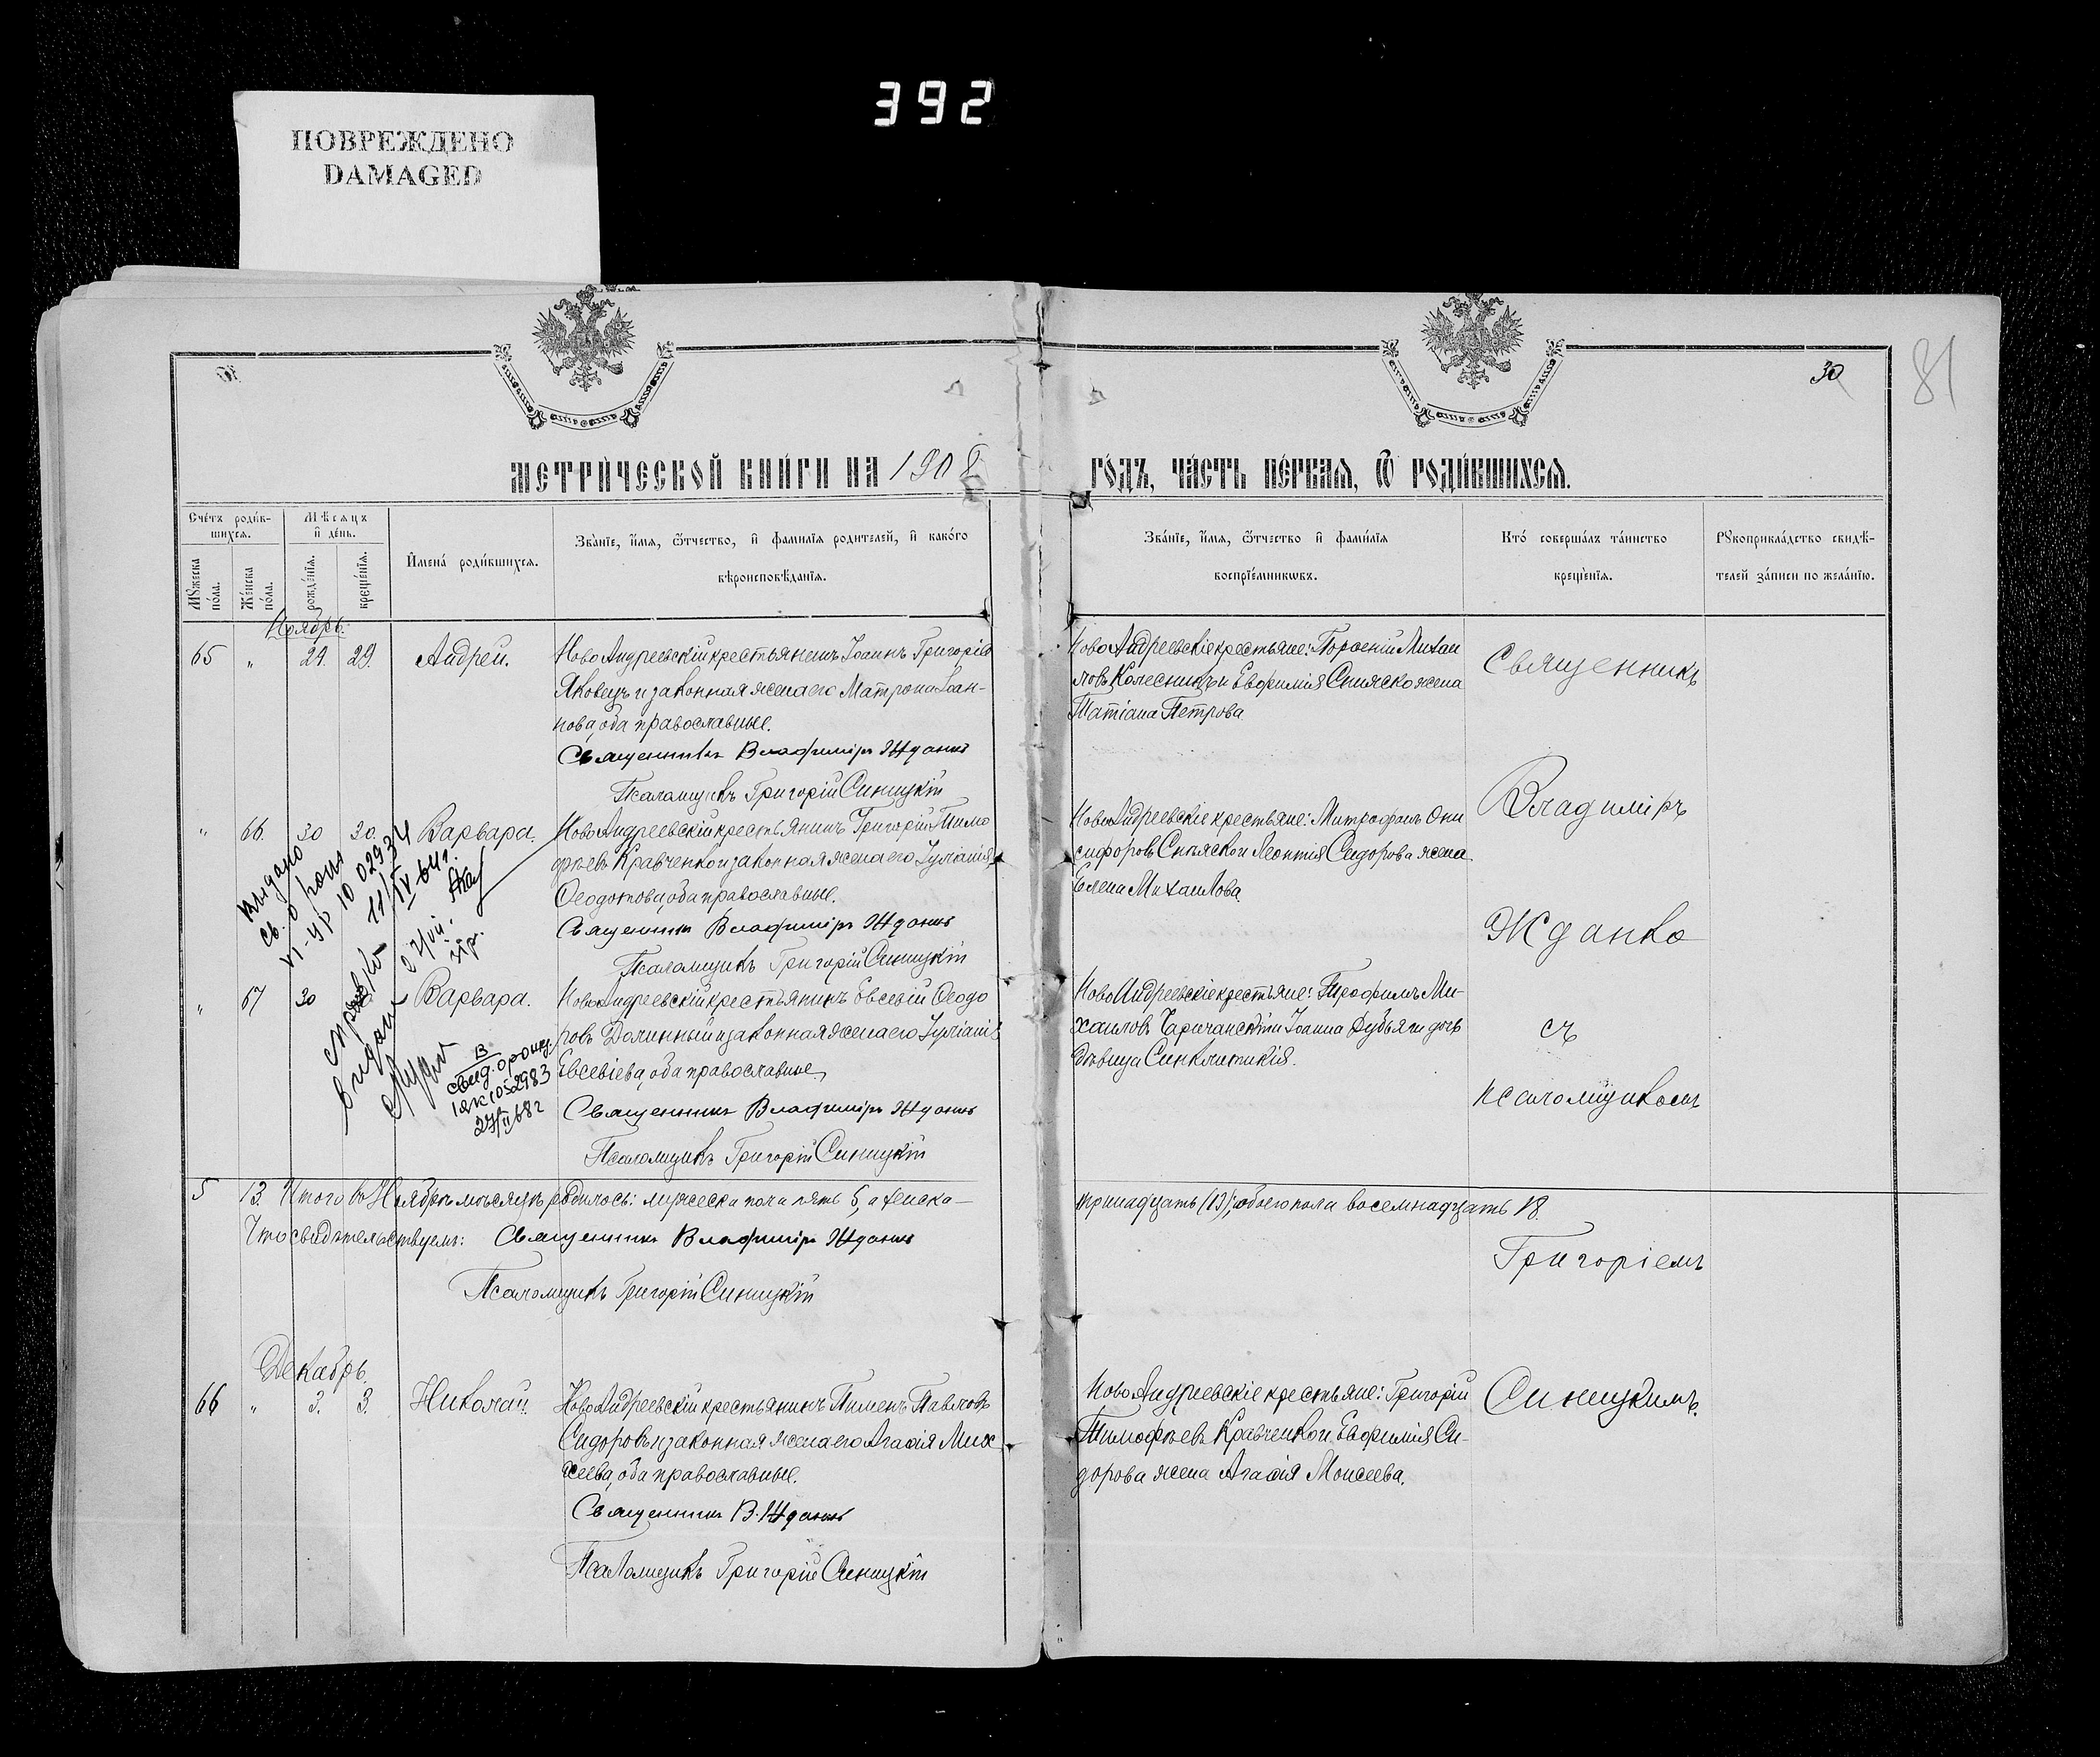 392
ПОВРЕЖДЕНО
DAMAGED
30
81
МЕТРИЧЕСКОЙ КНИГИ НА 1908
ГОДЪ, ЧАСТЬ ПЕРВАЯ, Ѿ РОДИВШИХСЯ.
Счетъ родив-
шихся.
Мѣсяцъ
и день.
Мꙋжеска
пола.
Женска
пола.
рожденїя.
крещенїя.
Имена родившихся.
Званїе, имя, ѿтчество, и фамилїя родителей, и какого
вѣроисповѣданїя.
Званїе, имя, ѿтчество и фамилїя
воспрїемникѡвъ.
Кто совершалъ таинство
крещенїя.
Рꙋкоприкладство свидѣ-
телей записи по желанїю.
Ноябрь.
65 " 29. Андрей.
НовоАндреевскій крестьянинъ Іоаннъ Григоріев
Яковецъ и законная жена его Матрона Іоан-
нова, оба православные.
Священникъ Владиміръ Жданко
Псаломщикъ Григорій Синицкій
НовоАндреевскіе крестьяне: Михаи
ловъ Колесникъ и Евфимія жена
Татіана Петрова
" 66. 30 30. Варвара.
НовоАндреевскій крестьянинъ Григорій Тимо
фѣевъ Кравченко и законная жена его Іуліанія
Ѳеодотова, оба православные.
Священникъ Владиміръ Жданко
Псаломщикъ Григорій Синицкій
НовоАндреевскіе крестьяне: Митрофанъ Они
сифоровъ и Леонтія Сидорова жена
Елена Михаилова
Выдано
10 02934
11/IV 64г.
" 67 30 Варвара.
НовоАндреевскій крестьянинъ Евсевій Ѳеодо
ровъ Долинный и законная жена его Іуліанія
Евсевіева, оба православные.
Священникъ Владиміръ Жданко
Псаломщикъ Григорій Синицкій
НовоАндреевскіе крестьяне: Трофимъ Ми-
хаиловъ Чаричанскій и Іоанна дочь
дѣвица Синклитикія.
свид. о рожд.
5 13. Итого въ Ноябрѣ мѣсяцѣ родилось: мужеска пола пять 5, а женска —
тринадцать (13); обоего пола восемнадцать 18.
Что свидѣтельствуемъ: Священникъ Владиміръ Жданко
Псаломщикъ Григорій Синицкій
Декабрь.
66 " 3. 3. Николай.
НовоАндреевскій крестьянинъ Пименъ Павловъ
Сидоровъ и законная жена его Агаѳія Мих
еева, оба православные.
Священникъ В. Жданко
Псаломщикъ Григорій Синицкій
НовоАндреевскіе крестьяне: Григорій
Тимофѣевъ Кравченко и Евфимія Си-
дорова жена Агаѳія Моисеева.
Священникъ
Владиміръ
Жданко
съ
псаломщикомъ
Григоріемъ
Синицкимъ.